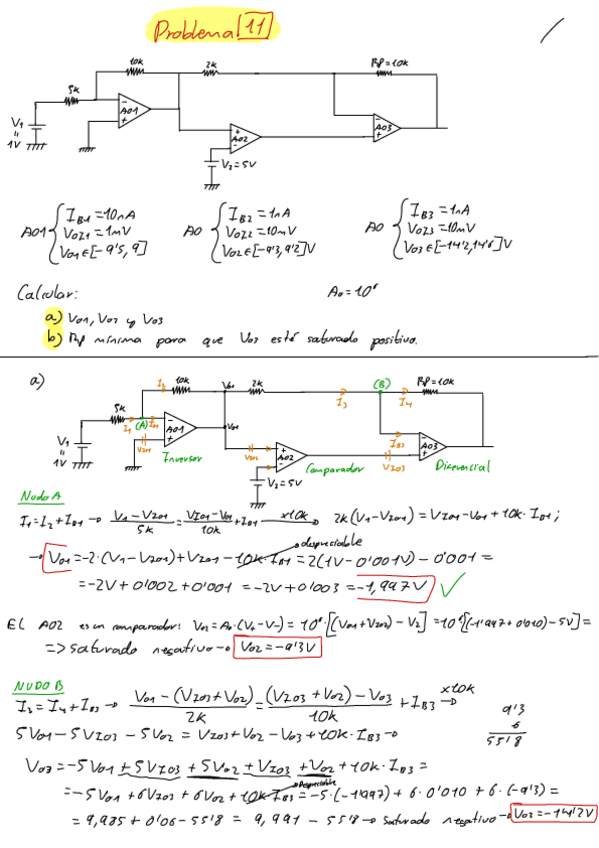 Problema 11
10k
2k
RP=10k
5k
V1
"
1V
AO1
AO2
AO3
V2=5V
AO1 { IB1=10nA
VOI1=1mV
VO1∈[-9'5, 9]
AO { IB2=1nA
VOI2=10mV
VO2∈[-9'3, 9'2]V
AO { IB3=1nA
VOI3=10mV
VO3∈[-14'2, 14'6]V
Calcular:
a) VO1, VO2 y VO3
b) RP mínima para que VO3 esté saturado positivo.
a)
I2
10k
VO1
2k
I3
(B)
I4
RP=10k
5k
I1
(A)
IB1
AO1
VO1
IB3
AO3
V1
"
1V
Inversor
AO2
Comparador
VIO3
Diferencial
V2=5V
Nudo A
I1=I2+IB1 → V1-VIO1/5k = VIO1-VO1/10k + IB1 x10k → 2k(V1-VIO1)=VIO1-VO1+10k·IB1;
despreciable
→ VO1=-2·(V1-VIO1)+VIO1-10k·IB1=2(1V-0'001V)-0'001=
=-2V+0'002+0'001=-2V+0'003=-1,997V ✓
El AO2 es un comparador: VO2=Ao·(V+-V-)=10⁵·[(VO1+VIO2)-V2]=10⁵[(-1'997+0'010)-5V]=
=> saturado negativo → VO2=-9'3V
NUDO B
I3=I4+IB3 → VO1-(VIO3+VO2)/2k = (VIO3+VO2)-VO3/10k + IB3 x10k →
9'3
6
55'8
5VO1-5VIO3-5VO2=VIO3+VO2-VO3+10k·IB3→
VO3=-5VO1+5VIO3+5VO2+VIO3+VO2+10k·IB3=
Despreciable
=-5VO1+6VIO3+6VO2+10k·IB3=-5·(-1'997)+6·0'010+6·(-9'3)=
=9,985+0'06-55'8=9,991-55'8→saturado negativo→VO3=-14'2V